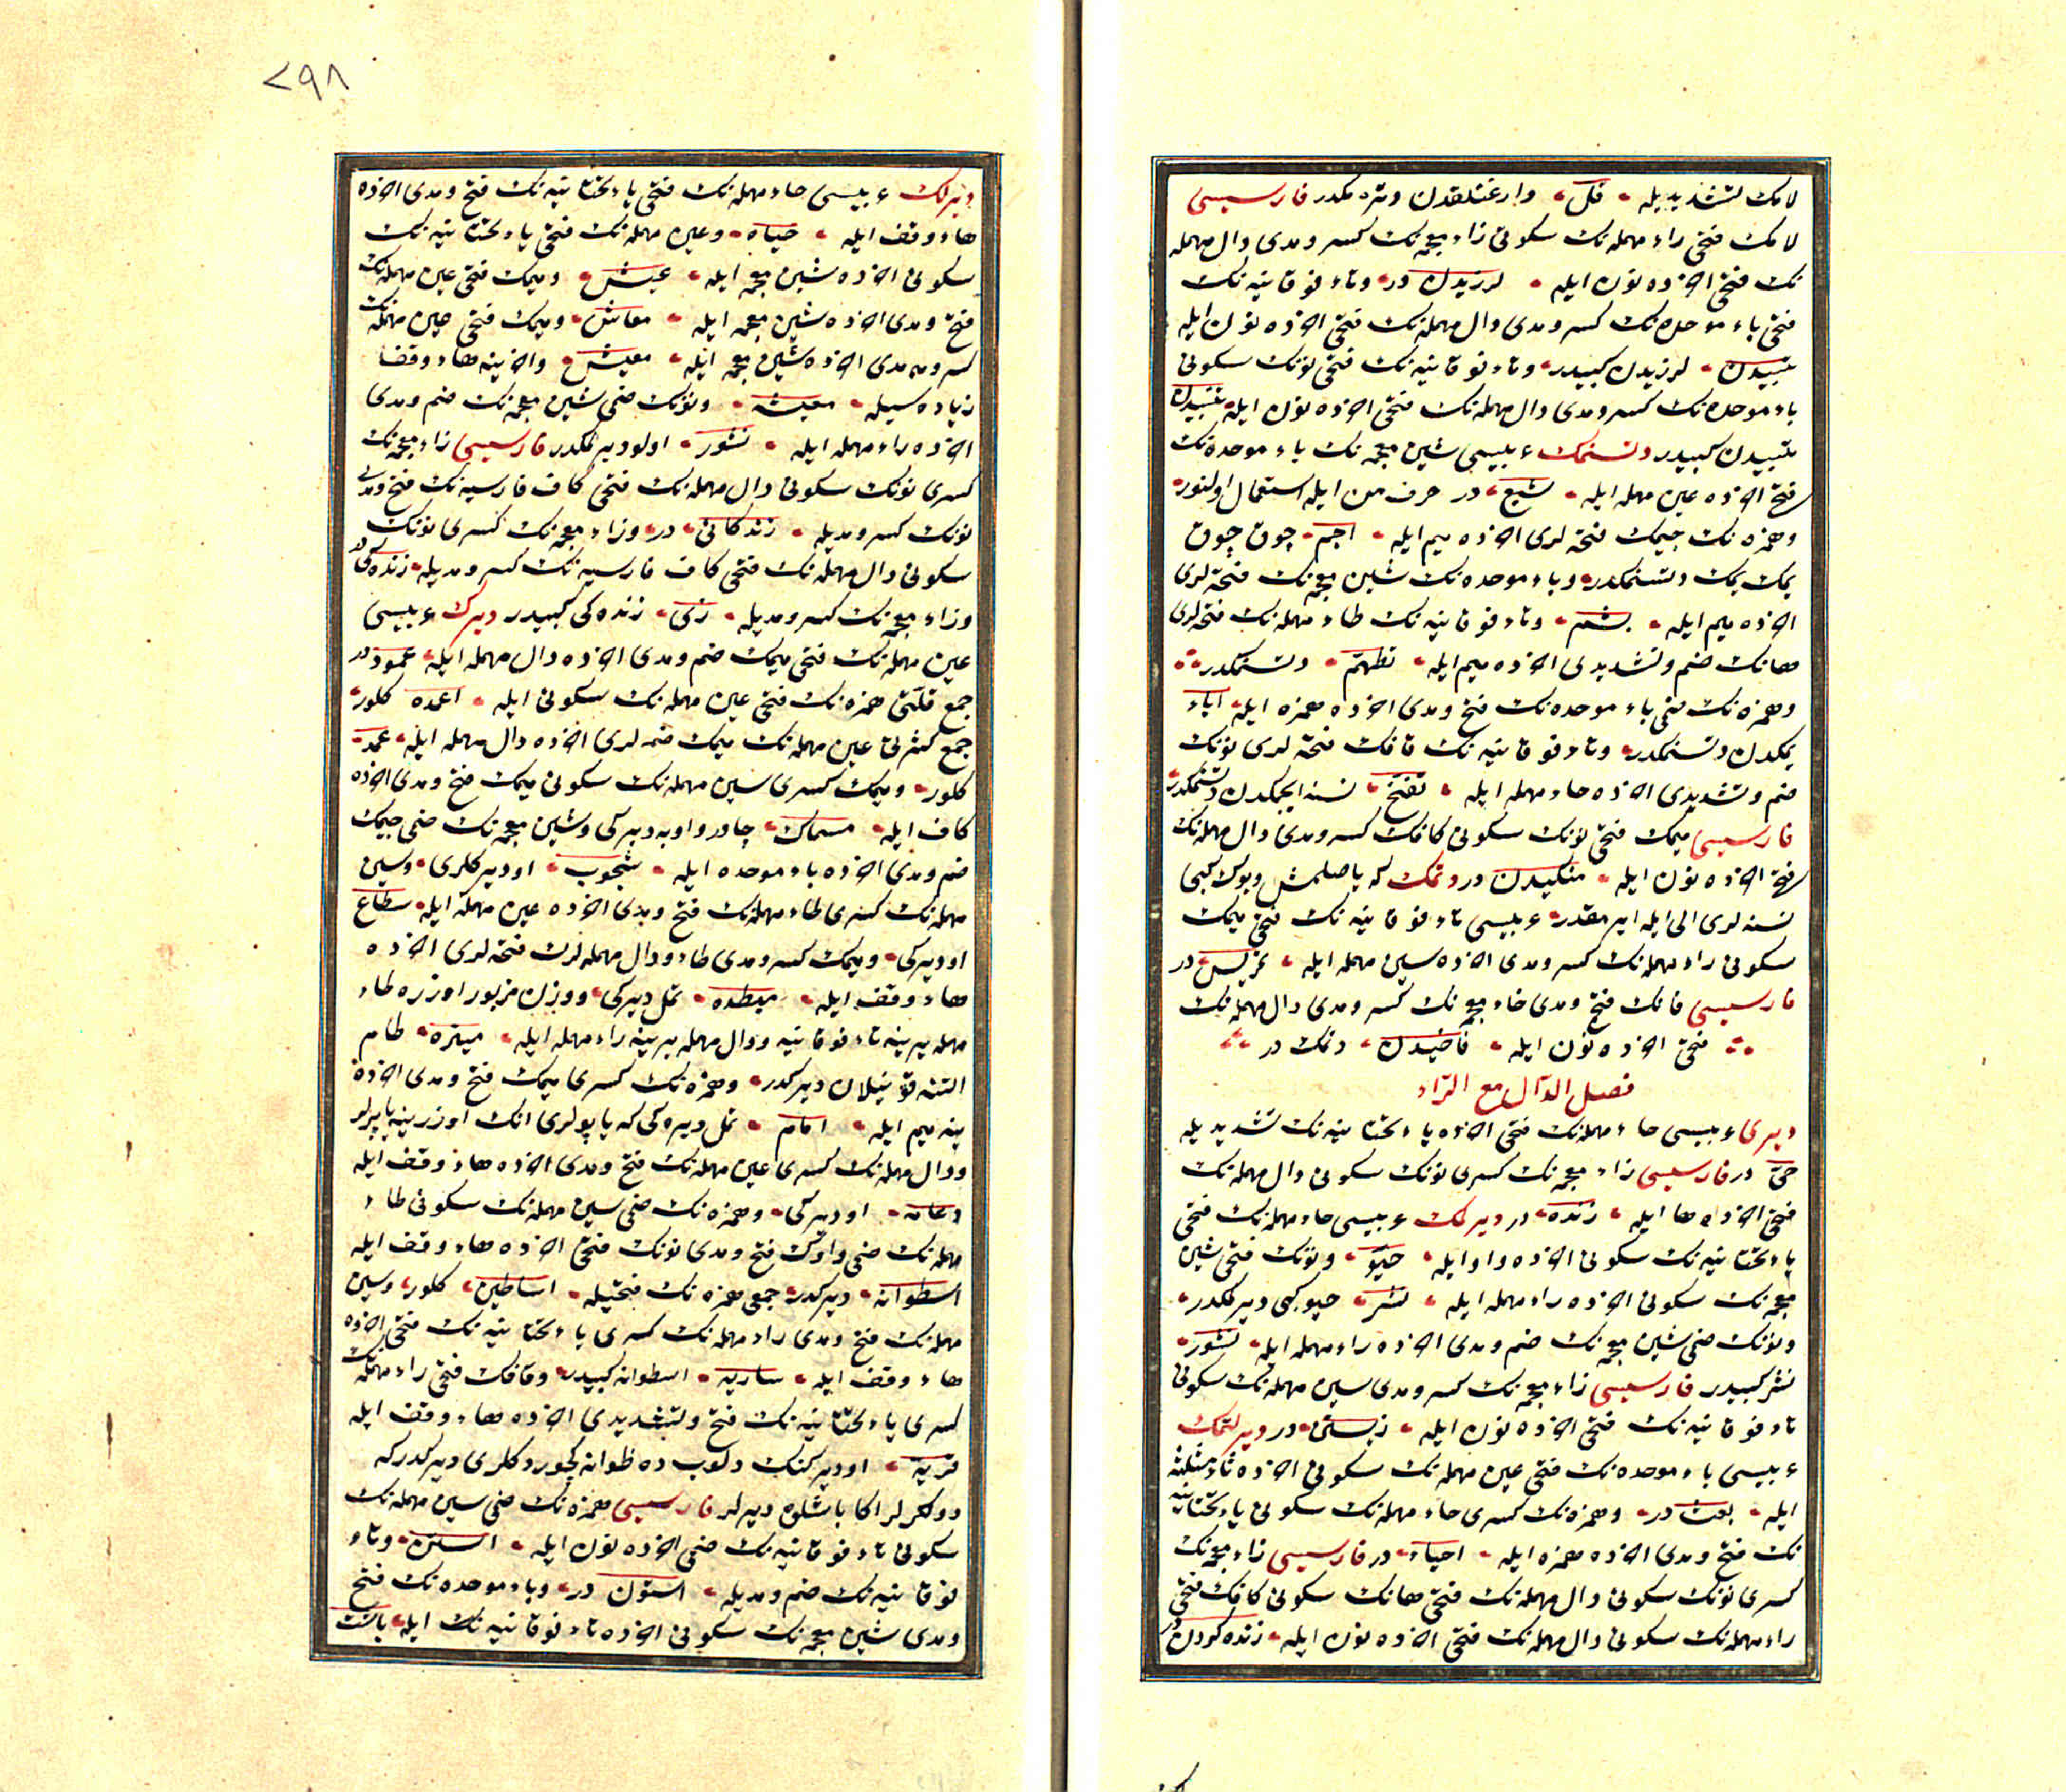 لامك تشديديله فلّ وارغنلقدن دتره مكدر فارسيسى
لامك فتحى راء مهمله نك سكونى زاء معجمه نك كسر ومدى دال مهمله
نك فتحى اخرده نون ايله لرزيدن در وتاء فوقانيه نك
فتحى باء موحده نك كسر ومدى دال مهمله نك فتحى اخرده نون ايله
تبيدن لرزيدن كبيدر وتاء فوقانيه نك فتحى نونك سكونى
باء موحده نك كسر ومدى دال مهمله نك فتحى اخرده نون ايله تنبيدن
تبيدن كبيدر دتسنمك عربيسى شين معجمه نك باء موحده نك
فتح اخرده عين مهمله ايله شبع در حرف من ايله استعمال اولنور
وهمزه نك جيمك فتحه لرى اخرده ميم ايله اجم چوق چوق
يمك يمك دتسنمكدر وباء موحده نك شين معجمه نك فتحه لرى
اخرده ميم ايله بشم وتاء فوقانيه نك طاء مهمله نك فتحه لرى
هانك ضم وتشديدى اخرده ميم ايله تطهّم دتسنمكدر
وهمزه نك فتحى باء موحده نك فتح ومدى اخرده همزه ايله اباء
يمكدن دتسنمكدر وتاء فوقانيه نك قافك فتحه لرى نونك
ضم وتشديدى اخرده حاء مهمله ايله تقنّح نسنه ايچمكدن دتسنمكدر
فارسيسى ميمك فتحى نونك سكونى كافك كسر ومدى دال مهمله نك
فتح اخرده نون ايله منكيدن در دتمك كه ياصلمش وبوك كبى
نسنه لرى الى ايله ايرمقدر عربيسى تاء فوقانيه نك فتحى ميمك
سكونى راء مهمله نك كسر ومدى اخرده سين مهمله ايله تمريس در
فارسيسى فانك فتح ومدى خاء معجمه نك كسر ومدى دال مهمله نك
فتحى اخرده نون ايله فاخيدن دتمك در
فصل الدال مع الراء
ديرى عربيسى حاء مهمله نك فتحى اخرده ياء تحتانيه نك تشديديله
حىّ در فارسيسى زاء معجمه نك كسرى نونك سكونى دال مهمله نك
فتحى اخرده ها ايله زنده در ديرلك عربيسى حاء مهمله نك فتحى
ياء تحتانيه نك سكونى اخرده واو ايله حيو ونونك فتحى شين
معجمه نك سكونى اخرده راء مهمله ايله نشر حيو كبى ديرلمكدر
ونونك ضمى شين معجمه نك ضم ومدى اخرده راء مهمله ايله نشور
نشر كبيدر فارسيسى زاء معجمه نك كسر ومدى سين مهمله نك سكونى
تاء فوقانيه نك فتحى اخرده نون ايله زيستن در ديرلتمك
عربيسى باء موحده نك فتحى عين مهمله نك سكونى اخرده ثاء مثلثه
ايله بعث در وهمزه نك كسرى حاء مهمله نك سكونى ياء تحتانيه
نك فتح ومدى اخرده همزه ايله احياء در فارسيسى زاء معجمه نك
كسرى نونك سكونى دال مهمله نك فتحى هانك سكونى كافك فتحى
راء مهمله نك سكونى دال مهمله نك فتحى اخرده نون ايله زنده كردن در
٢٩٨
ديرلك عربيسى حاء مهمله نك فتحى ياء تحتانيه نك فتح ومدى اخرده
هاء وقف ايله حياه وعين مهمله نك فتحى ياء تحتانيه نك
سكونى اخرده شين معجمه ايله عيش وميمك فتحى عين مهمله نك
فتح ومدى اخرده شين معجمه ايله معاش وميمك فتحى عين مهمله نك
كسر ومدى اخرده شين معجمه ايله معيش واخرينه هاء وقف
زياده سيله معيشه ونونك ضمى شين معجمه نك ضم ومدى
اخرده راء مهمله ايله نشور اولو ديرلمكدر فارسيسى زاء معجمه نك
كسرى نونك سكونى دال مهمله نك فتحى كاف فارسيه نك فتح ومدى
نونك كسر ومديله زندكانى در وزاء معجمه نك كسرى نونك
سكونى دال مهمله نك فتحى كاف فارسيه نك كسر ومديله زنده كى در
وزاء معجمه نك كسر ومديله زى زنده كى كبيدر ديرك عربيسى
عين مهمله نك فتحى ميمك ضم ومدى اخرده دال مهمله ايله عمود در
جمع قلتى همزه نك فتحى عين مهمله نك سكونى ايله اعمده كلور
جمع كثرتى عين مهمله نك ميمك ضمه لرى اخرده دال مهمله ايله عمد
كلور وميمك كسرى سين مهمله نك سكونى ميمك فتح ومدى اخرده
كاف ايله مسماك چادر واوبه ديركى وشين معجمه نك ضمى جيمك
ضم ومدى اخرده باء موحده ايله شجوب او ديركلرى وسين
مهمله نك كسرى طاء مهمله نك فتح ومدى اخرده عين مهمله ايله سطاع
او ديركى وميمك كسر ومدى طاء ودال مهمله لرك فتحه لرى اخرده
هاء وقف ايله ميطده تمل ديركى ووزن مزبور اوزره طاء
مهمله يرينه تاء فوقانيه ودال مهمله يرينه راء مهمله ايله ميتره طام
التنه قوينيلان ديركدر وهمزه نك كسرى ميمك فتح ومدى اخرده
ينه ميم ايله امام تمل ديره كى كه ياپولرى انك اوزرينه ياپرلر
ودال مهمله نك كسرى عين مهمله نك فتح ومدى اخرده هاء وقف ايله
دعامه او ديركى وهمزه نك ضمى سين مهمله نك سكونى طاء
مهمله نك ضمى واوك فتح ومدى نونك فتحى اخرده هاء وقف ايله
اسطوانه ديركدر جمعى همزه نك فتحيله اساطين كلور وسين
مهمله نك فتح ومدى راء مهمله نك كسرى ياء تحتانيه نك فتحى اخرده
هاء وقف ايله ساريه اسطوانه كبيدر وقافك فتحى راء مهمله نك
كسرى ياء تحتانيه نك فتح وتشديدى اخرده هاء وقف ايله
قريّه او ديركنك دلوب ده
دولكرلر اكا باشلق ديرلر فارسيسى همزه نك ضمى سين مهمله نك
سكونى تاء فوقانيه نك ضمى اخرده نون ايله استن وتاء
فوقانيه نك ضم ومديله استون در وباء موحده نك فتح
ومدى شين معجمه نك سكونى اخرده تاء فوقانيه نك ايله باشت